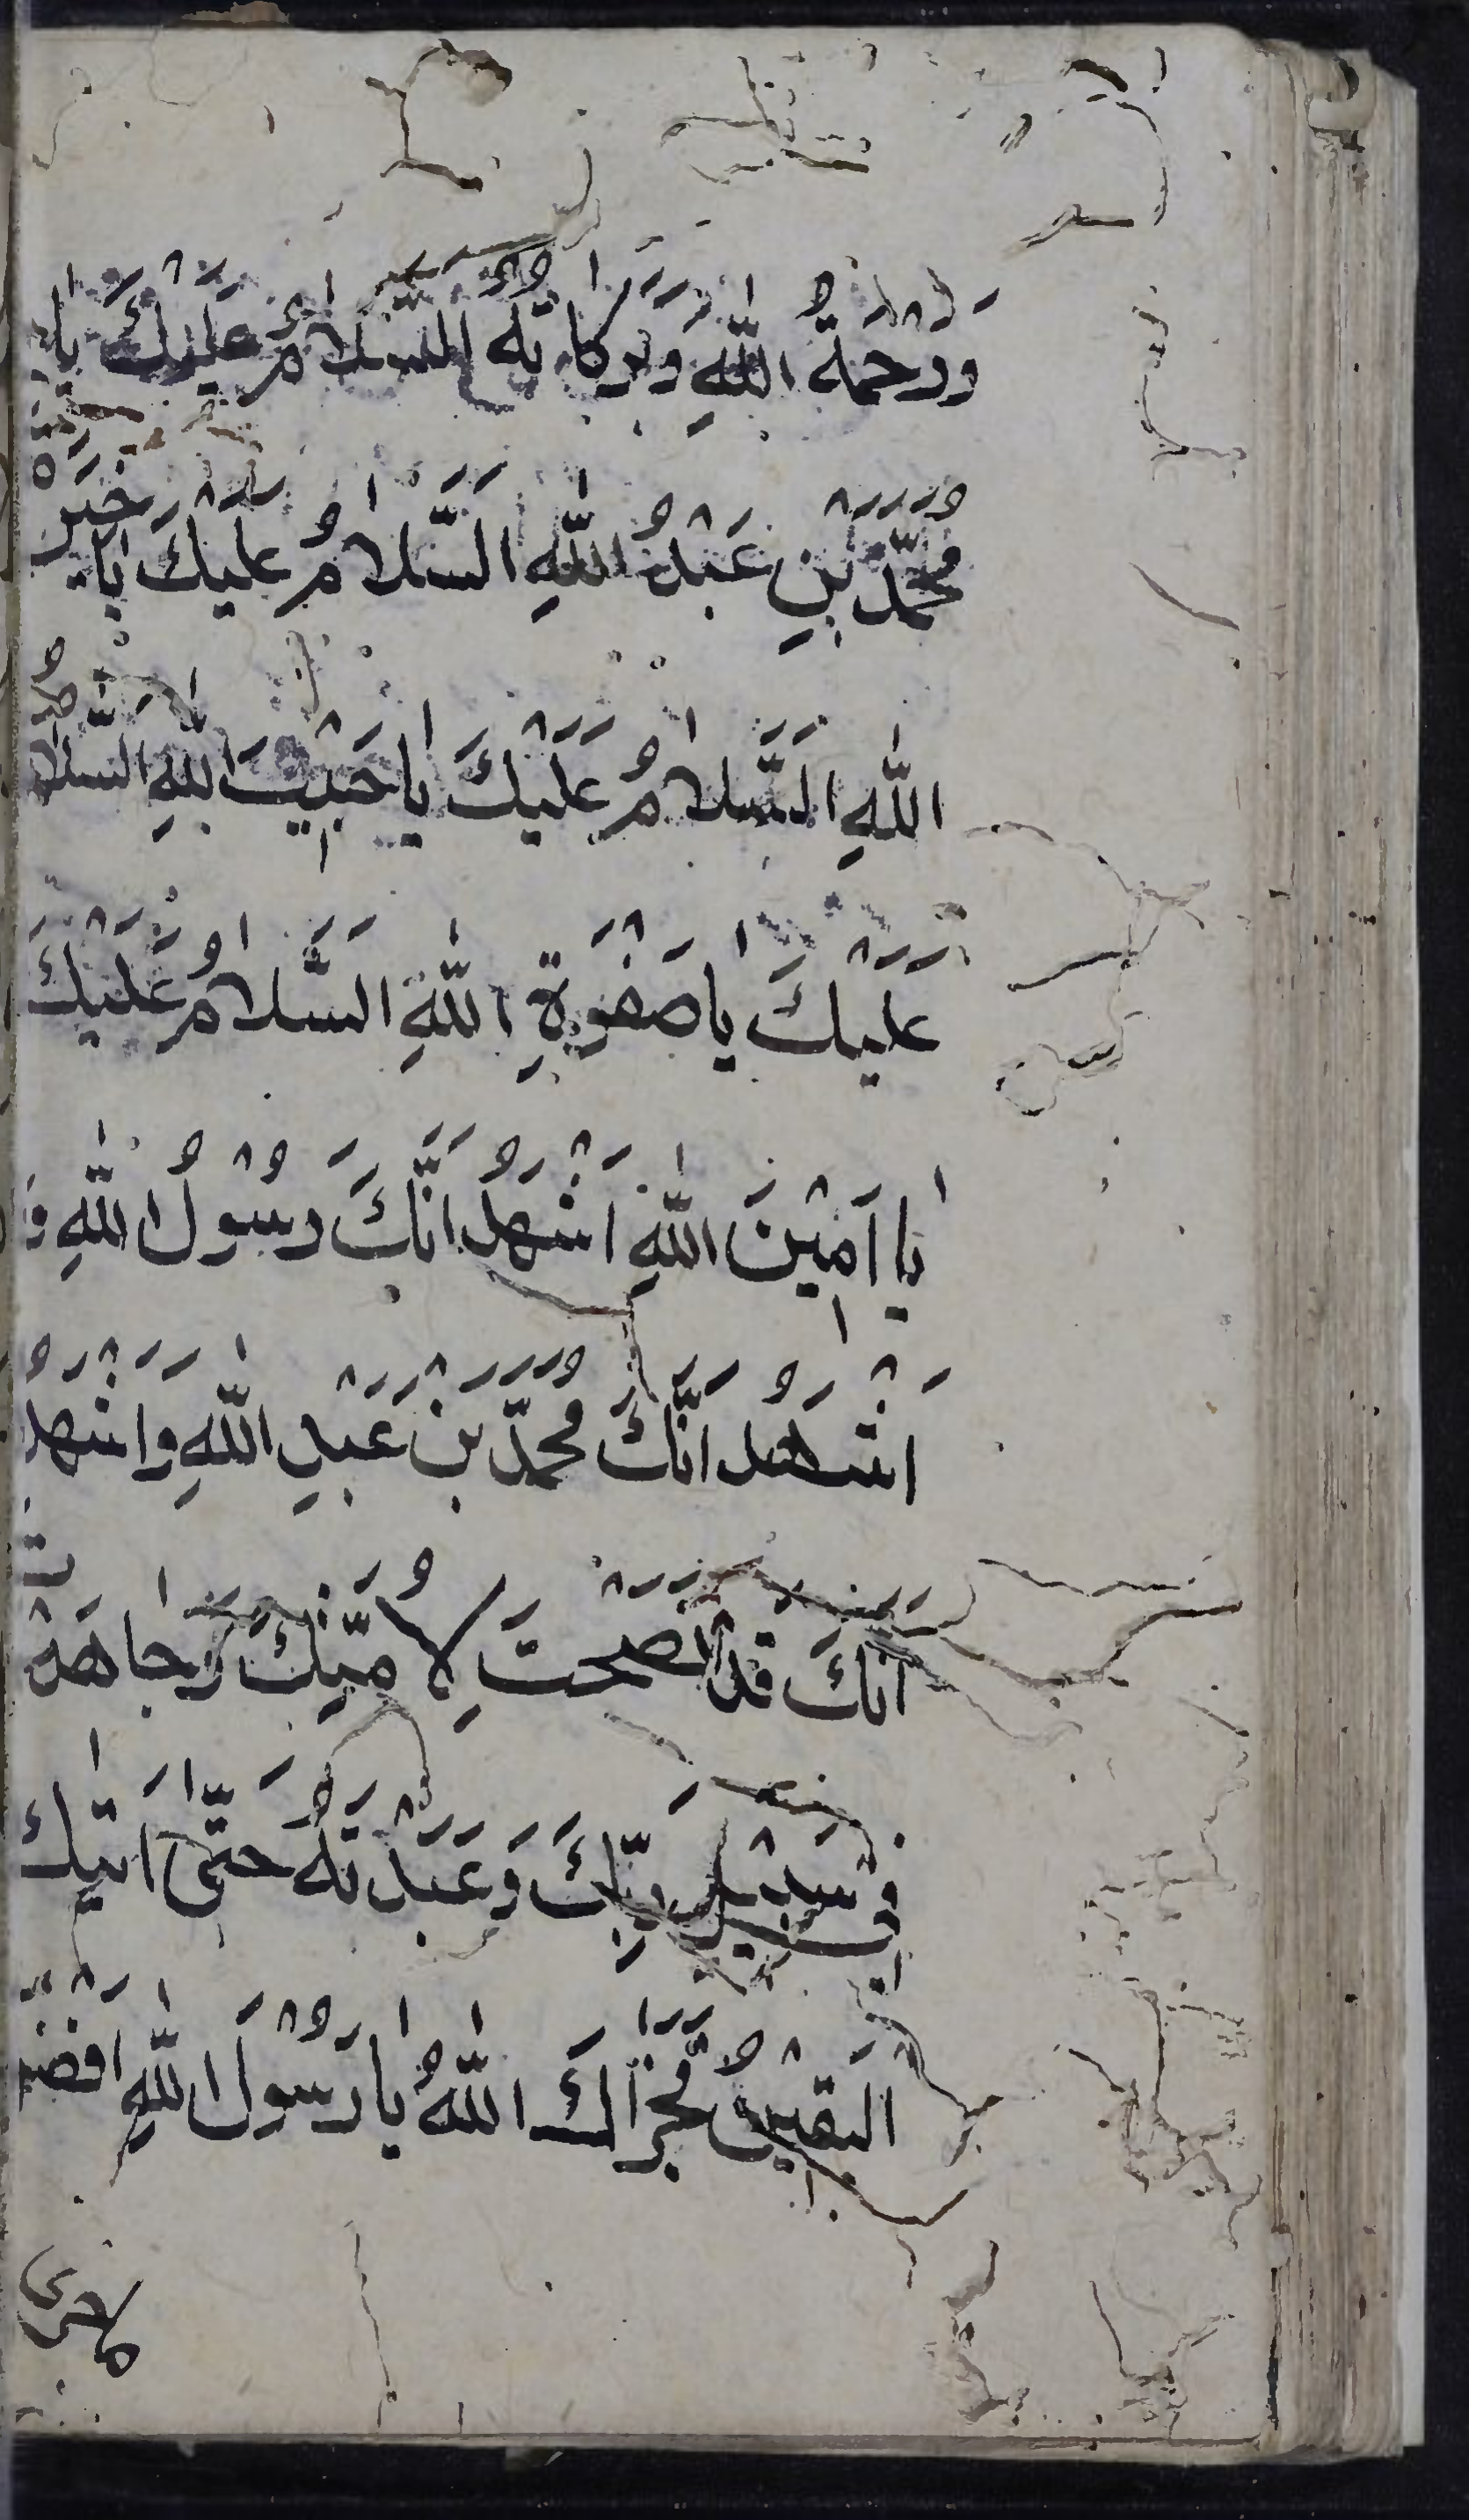 وَرَحْمَةُ اللّٰهِ وَبَرَكَاتُهُ اَلسَّلَامُ عَلَيْكَ يَا
مُحَمَّدَ بْنِ عَبْدُ اللّٰهِ اَلسَّلَامُ عَلَيْكَ يَا خَيْرَةَ
اللّٰهِ اَلسَّلَامُ عَلَيْكَ يَا حَبِيْبَ اللّٰهِ السَّلَامُ
عَلَيْكَ يَا صَفْوَةِ اللّٰهِ السَّلَامُ عَلَيْكَ
يَا اَمِيْنَ اللّٰهِ اَشْهَدُ اَنَّكَ رَسُوْلُ اللّٰهِ وَ
اَشْهَدُ اَنَّكَ مُحَمَّدَ بْنَ عَبْدِ اللّٰهِ وَاَشْهَدُ
اَنَّكَ قَدْ نَصَحْتَ لِاُمَّتِكَ وَجَاهَدْتَ
فِي سَبِيْلِ رَبِّكَ وَعَبَدْتَهُ حَتّٰى اَتٰيكَ
الْيَقِيْنُ فَجَزَاكَ اللّٰهُ يَا رَسُوْلَ اللّٰهِ اَفْضَلَ
ماجزى